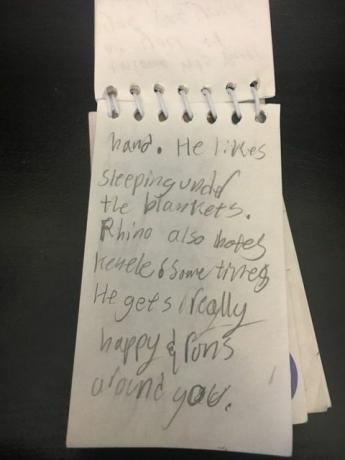 hand. He likes
sleeping undr
the blankets.
Rhino also hates
some times
He gets really
happy & rons
around you.